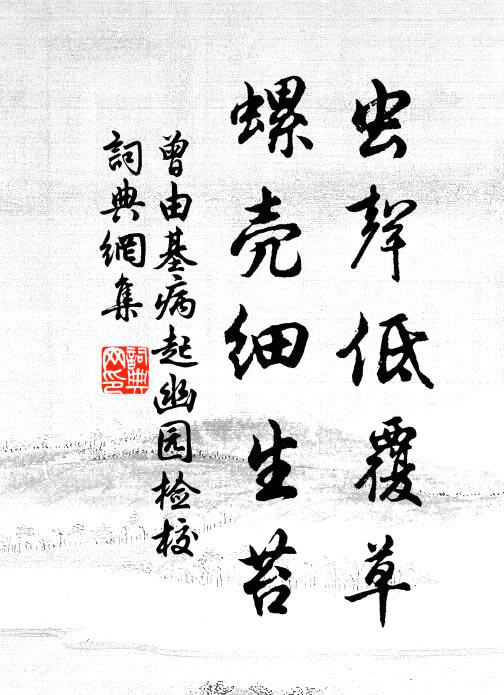 虫聲低覆草
螺壳细生苔
曾由基病起幽园检校
詞典網集
詞典网印